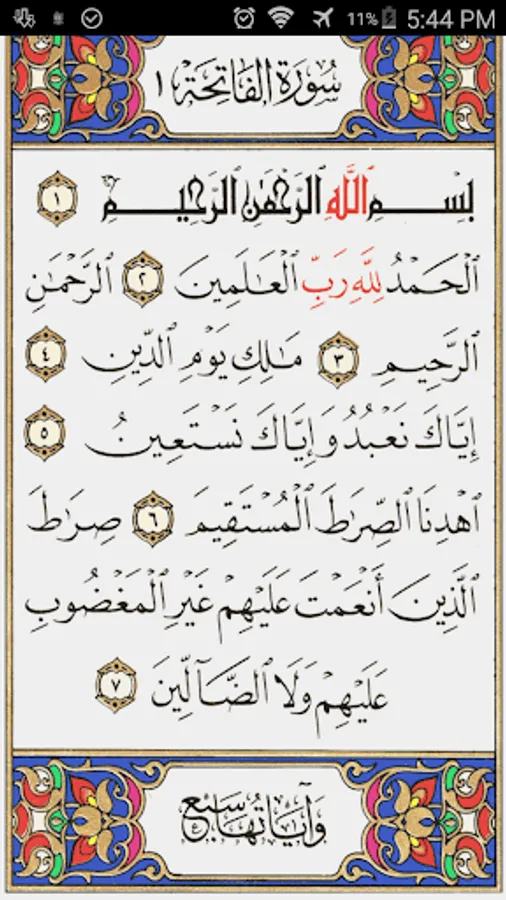 11% 5:44 PM
سُورَةُ الفَاتِحَة ١
بِسْمِ اللَّهِ الرَّحْمَٰنِ الرَّحِيمِ ١
ٱلْحَمْدُ لِلَّهِ رَبِّ ٱلْعَٰلَمِينَ ٢ ٱلرَّحْمَٰنِ
ٱلرَّحِيمِ ٣ مَٰلِكِ يَوْمِ ٱلدِّينِ ٤
إِيَّاكَ نَعْبُدُ وَإِيَّاكَ نَسْتَعِينُ ٥
ٱهْدِنَا ٱلصِّرَٰطَ ٱلْمُسْتَقِيمَ ٦ صِرَٰطَ
ٱلَّذِينَ أَنْعَمْتَ عَلَيْهِمْ غَيْرِ ٱلْمَغْضُوبِ
عَلَيْهِمْ وَلَا ٱلضَّآلِّينَ ٧
وَآيَاتُهَا سَبْع